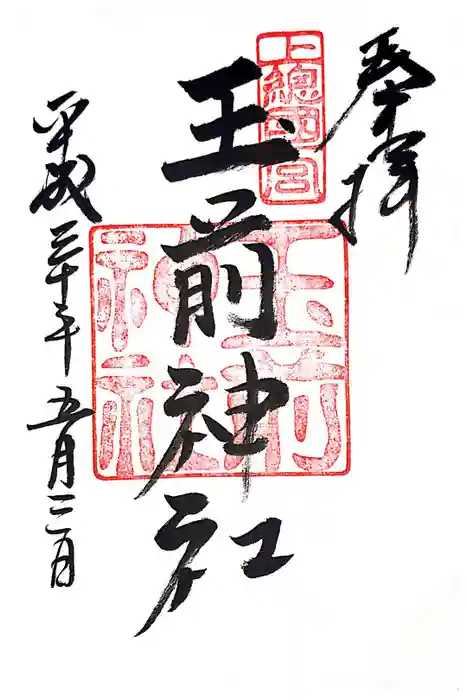 奉拝
上總國一宮
玉前神社
玉前神社
平成三十年五月二日